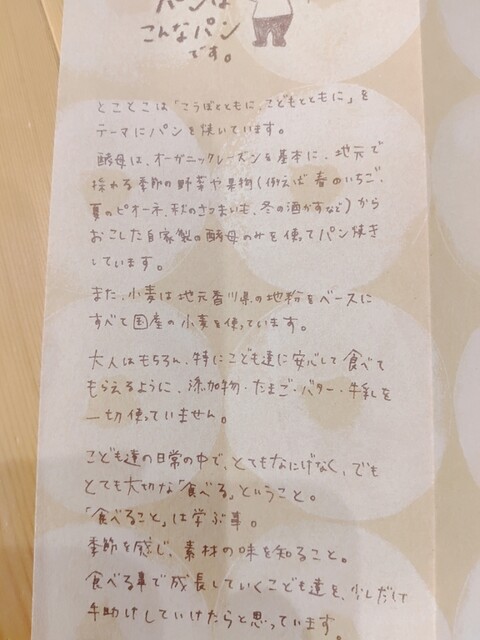 パンは
こんなパン
です。
とことこは「こうぼとともに、こどもとともに」を
テーマにパンを焼いています。
酵母は、オーガニックレーズンを基本に、地元で
採れる季節の野菜や果物(例えば春のいちご、
夏のピオーネ、秋のさつまいも、冬の酒かすなど)から
おこした自家製の酵母のみを使ってパン焼き
しています。
また、小麦は地元香川県の地粉をベースに
すべて国産の小麦を使っています。
大人はもちろん、特にこども達に安心して食べて
もらえるように、添加物・たまご・バター・牛乳を
一切使っていません。
こども達の日常の中で、とてもなにげなく、でも
とても大切な「食べる」ということ。
「食べること」は学ぶ事。
季節を感じ、素材の味を知ること。
食べる事で成長していくこども達を、少しだけ
手助けしていけたらと思っています。